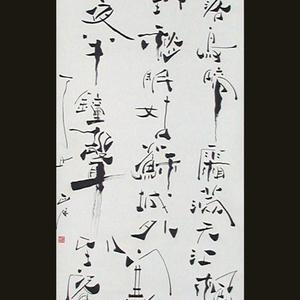 落烏啼霜滿天江楓
對愁眠姑蘇城外
夜半鐘聲到客